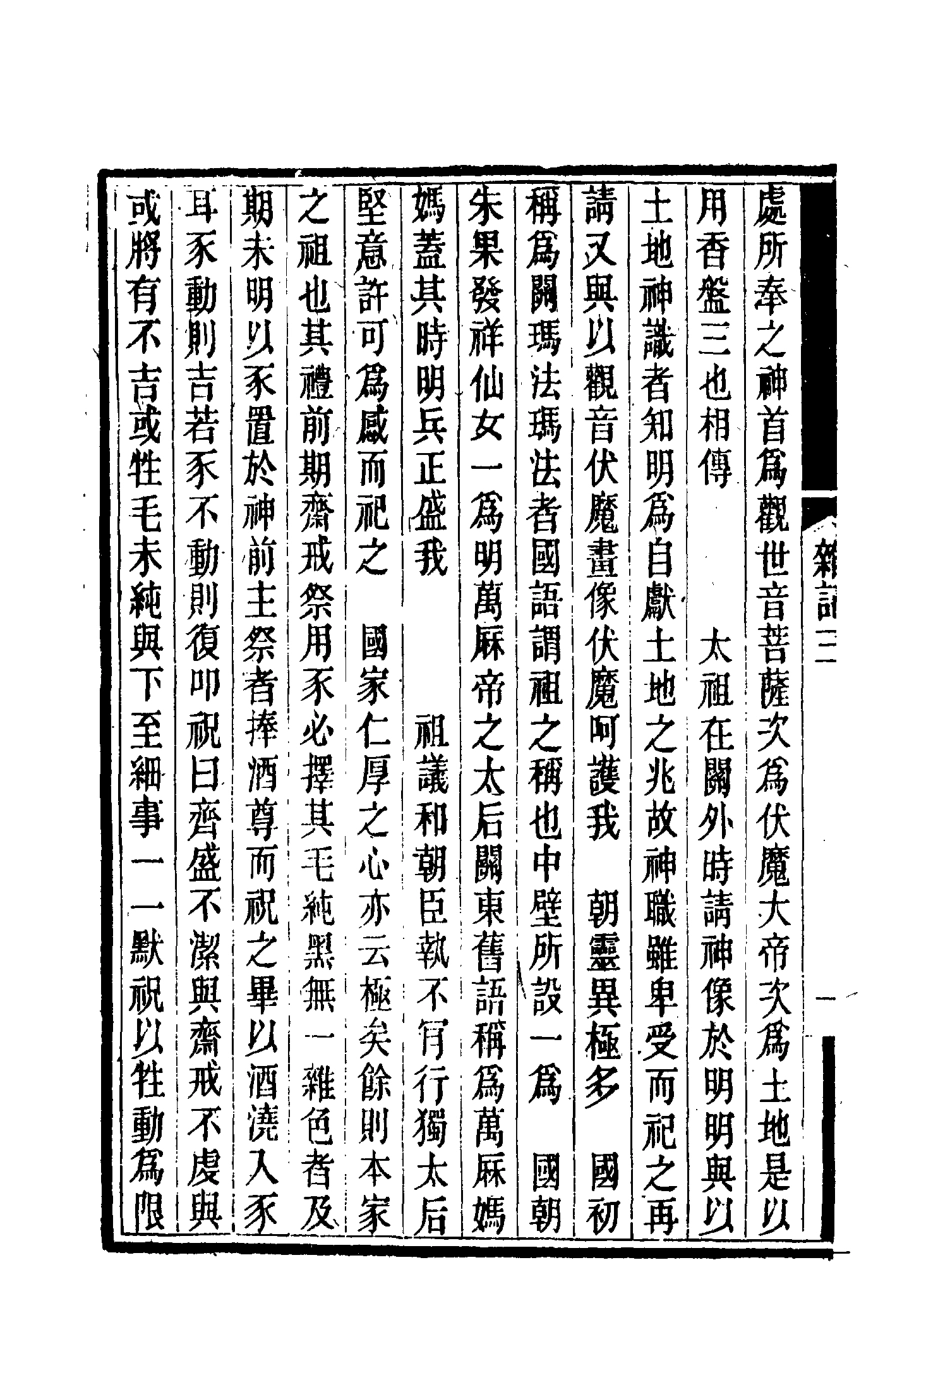 雜記三
一
處所奉之神首爲觀世音菩薩次爲伏魔大帝次爲土地是以
用香盤三也相傳　太祖在關外時請神像於明明與以
土地神識者知明爲自獻土地之兆故神職雖卑受而祀之再
請又與以觀音伏魔畫像伏魔呵護我　朝靈異極多　國初
稱爲關瑪法瑪法者國語謂祖之稱也中壁所設一爲　國朝
朱果發祥仙女一爲明萬厤帝之太后關東舊語稱爲萬厤媽
媽蓋其時明兵正盛我　祖議和朝臣執不肎行獨太后
堅意許可爲感而祀之　國家仁厚之心亦云極矣餘則本家
之祖也其禮前期齋戒祭用豕必擇其毛純黑無一雜色者及
期未明以豕置於神前主祭者捧酒尊而祝之畢以酒澆入豕
耳豕動則吉若豕不動則復叩祝曰齊盛不潔與齋戒不虔與
或將有不吉或牲毛未純與下至細事一一默祝以牲動爲限